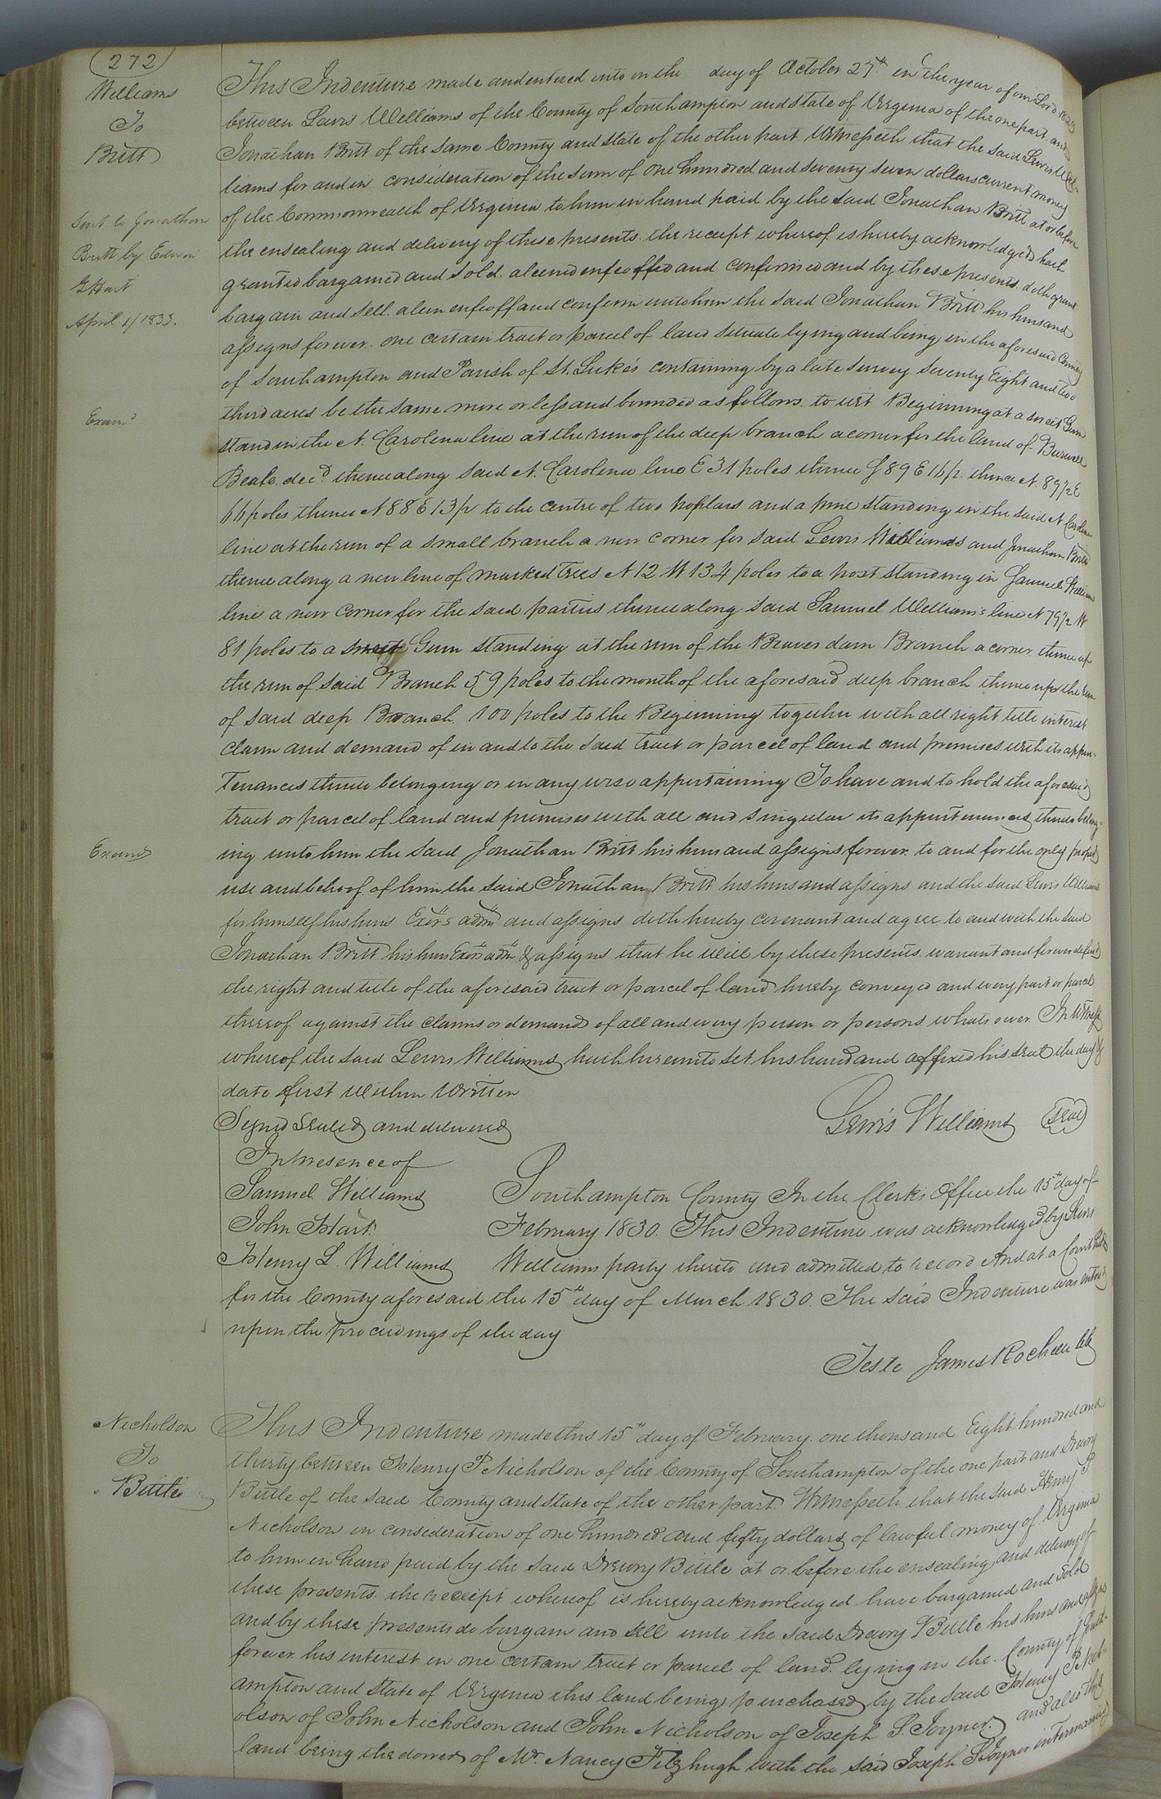 272
Williams
To
Britt
Sent to Jonathan
Britt by Edwin
G Hart
April 1/1833.
Exam<sup>d</sup>
Examd
This Indenture made and entered into on the day of October 27th in the year of our Lord 1829
between Lewis Williams of the County of Southampton and state of Virginia of the one part and
Jonathan Britt of the same County and state of the other part Witnesseth that the said Lewis Wil-
liams for and in consideration of the sum of one hundred and seventy seven dollars current money
of the Commonwealth of Virginia to him in hand paid by the said Jonathan Britt at or before
the ensealing and delivery of these presents the receipt whereof is hereby acknowledged hath
granted bargained and sold aliened enfeoffed and confirmed and by these presents doth grant
bargain and sell alien enfeoff and confirm unto him the said Jonathan Britt his heirs and
assigns forever one certain tract or parcel of land situate lying and being in the aforesaid County
of Southampton and Parish of St. Luke's containing by a late survey Seventy Eight and two
third acres be the same more or less and bounded as follows to wit Beginning at a sweet Gum
stand in the N. Carolina line at the run of the deep branch a corner for the land of Burwell
Beale decd thence along said N. Carolina line E 31 poles thence S 89 E 16 p. thence N. 89 1/2 E
66 poles thence N 88 E 13 p to the centre of two poplars and a pine standing in the said N Carolina
line at the run of a small branch a new corner for said Lewis Williams and Jonathan Britt
thence along a new line of marked trees N 12 W 134 poles to a post standing in Samuel Williams
line a new corner for the said parties thence along said Samuel Williams's line N 79 1/2 W
81 poles to a sweet Gum standing at the run of the Beaver dam Branch a corner thence up
the run of said Branch 59 poles to the mouth of the aforesaid deep branch thence up the run
of said deep Branch 100 poles to the Beginning together with all right title interest
claim and demand of in and to the said tract or parcel of land and premises with its appur-
tenances thereto belonging or in any wise appertaining To have and to hold the aforesaid
tract or parcel of land and premises with all and singular its appurtenances thereto belong-
ing unto him the said Jonathan Britt his heirs and assigns forever to and for the only proper
use and behoof of him the said Jonathan Britt his heirs and assigns and the said Lewis Williams
for himself his heirs Exors admr and assigns doth hereby covenant and agree to and with the said
Jonathan Britt his heirs Exors admr & assigns that he will by these presents warrant and forever defend
the right and title of the aforesaid tract or parcel of land hereby conveyed and every part or parcel
thereof against the claims or demand of all and every person or persons whatsoever In Witness
whereof the said Lewis Williams hath hereunto set his hand and affixed his seal the day &
date first within written
Signed Sealed and delivered
Lewis Williams seal
In presence of
Samuel Williams
John Hart
Henry L. Williams
Southampton County In the Clerk's Office the 15th day of
February 1830. This Indenture was acknowledged by Lewis
Williams party thereto and admitted to record And at a Court held
for the County aforesaid the 15th day of March 1830. The said Indenture was entered
upon the proceedings of the day
Teste James Rochelle Clk
Nicholson
To
Bittle
This Indenture made this 15th day of February one thousand Eight hundred and
thirty between Henry P Nicholson of the County of Southampton of the one part and Drewry
Bittle of the said County and state of the other part Witnesseth that the said Henry P
Nicholson in consideration of one hundred and fifty dollars of lawful money of Virginia
to him in hand paid by the said Drewry Bittle at or before the ensealing and delivery of
these presents the receipt whereof is hereby acknowledged have bargained and sold
and by these presents do bargain and sell unto the said Drewry Bittle his heirs and assigns
forever his interest in one certain tract or parcel of land lying in the County of South-
ampton and state of Virginia this land being purchased by the said Henry P Nich-
olson of John Nicholson and John Nicholson of Joseph S. Joyner. and also this
land being the dower of Mrs Nancy Fitzhugh with the said Joseph S Joyner intermarried